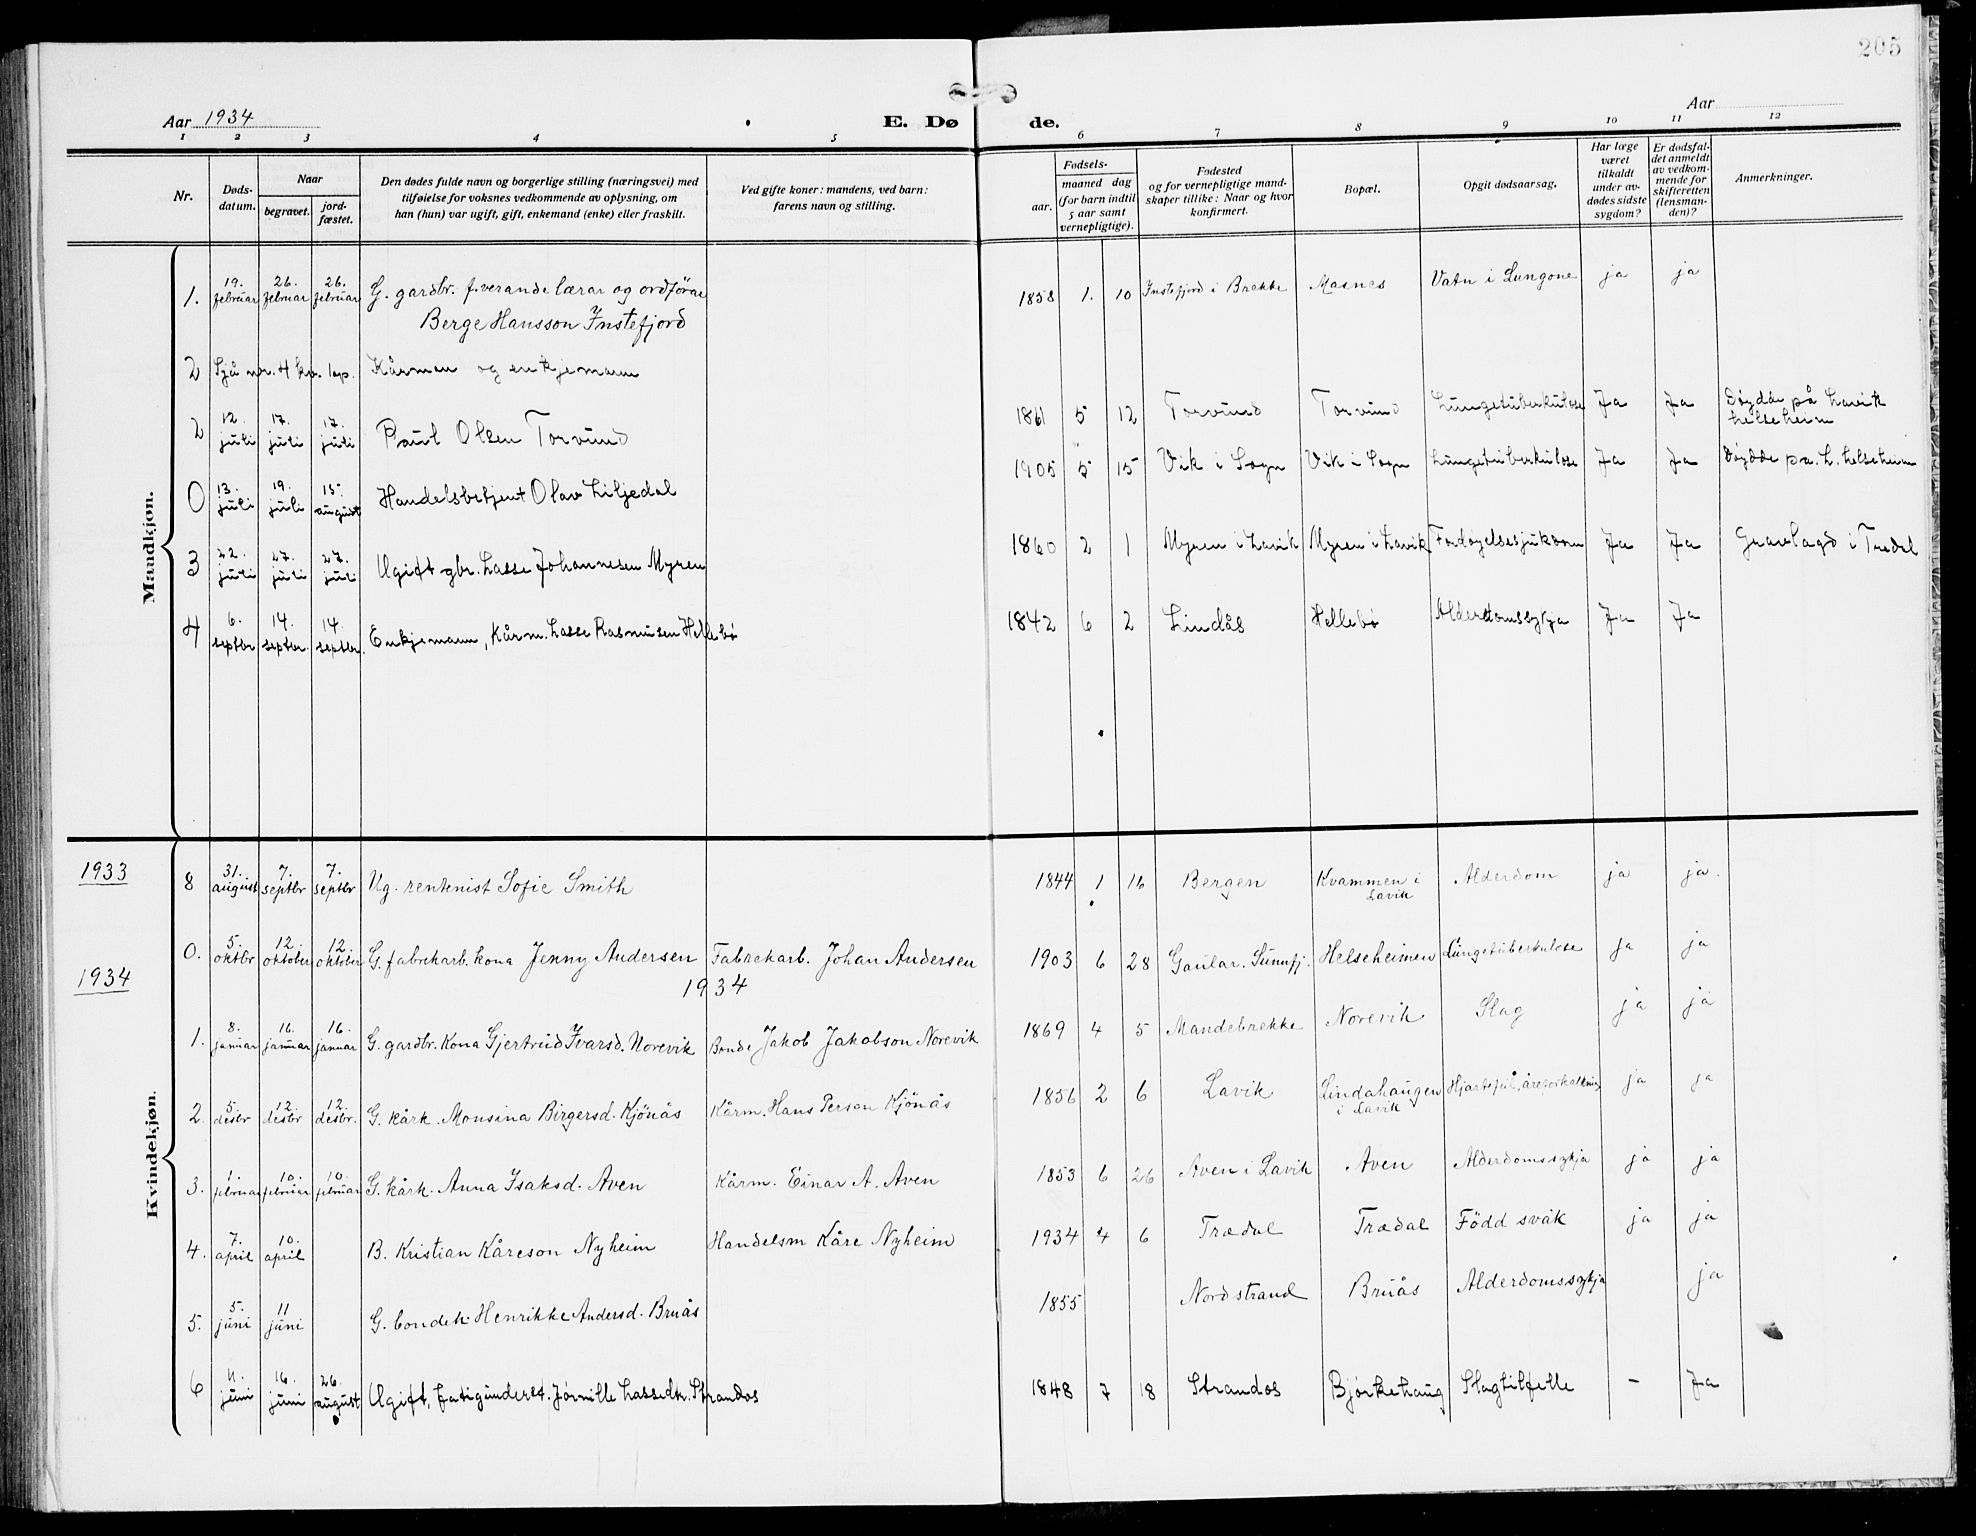 205
Aar 1934
E. Døde.
Aar
1 2 3 4 5 6 7 8 9 10 11 12
Nr.
Døds-
datum.
Naar
begravet.
jord-
fæstet.
Den dødes fulde navn og borgerlige stilling (næringsvei) med
tilføielse for voksnes vedkommende av oplysning, om
han (hun) var ugift, gift, enkemand (enke) eller fraskilt.
Ved gifte koner: mandens, ved barn:
farens navn og stilling.
Fødsels-
aar.
maaned dag
(for barn indtil
5 aar samt
vernepligtige).
Fødested
og for vernepligtige mand-
skaper tillike: Naar og hvor
konfirmert.
Bopæl.
Opgit dødsaarsag.
Har læge
været
tilkaldt
under av-
dødes sidste
sygdom?
Er dødsfal-
det anmeldt
av vedkom-
mende for
skifteretten
(lensman-
den)?
Anmerkninger.
Mandkjøn.
1. 19. februar 26. februar 26. februar G. gardbr. f.verande lærar og ordförar 1858 1. 10 Instefjord i Brekke Masnes Vatn i Lungone ja ja
Berge Hansson Instefjord
2 Sjå nr. 4 kv. 1 op. Kårman og enkjemann
2 12. juli 17. juli 17. juli Paul Olsen Torvund 1861 5 12 Torvund Torvund Lungetuberkulose Ja Ja Døydde på Lavik helseheim
0 13. juli 19. juli 15. august Handelsbetjent Olav Liljedal 1905 5 15 Vik i Sogn Vik i Sogn Lungetuberkulose Ja Ja Døydde på L. helseheim
3 22. juli 27. juli 27. juli Ugift gbr. Lasse Johannesen Myren 1860 2 1 Myren i Lavik Myren i Lavik Fordøyelsessjukdom Ja Ja Gravlagd i Tredal
4 6. septbr 14. septbr. 14. septbr. Enkjemann, Kårm. Lasse Rasmusen Hellebø 1842 6 2 Lindås Hellebø Alderdomssykja Ja Ja
Kvindekjøn.
1933
8 31. august 7. septbr 7. septbr Ug. rentenist Sofie Smith 1844 1 16 Bergen Kvammen i Lavik Alderdom ja ja.
0. 5. oktbr 12. oktober 12. oktober G. fabrekarb. kona Jenny Andersen Fabrekarb. Johan Andersen 1903 6 28 Gaular. Sunnfj. Helseheimen Lungetuberkulose ja ja
1934
1934
1. 8. januar 16. januar 16. januar G. gardbr. kona Gjertrud Ivarsd. Norevik Bonde Jakob Jakobson Norevik 1869 4 5 Mandebrekke Norevik Slag ja ja
2. 5. desbr 12. desbr 12. desbr. G. kårk. Monsina Birgersd. Kjönås Kårm. Hans Person Kjönås 1856 2 6 Lavik Lindahaugen i Lavik Hjartefeil, åreforkalkning ja ja
3. 1. februar 10. februar 10. februar G. kårk. Anna Isaksd. Aven Kårm. Einar A. Aven 1853 6 26 Aven i Lavik Aven Alderdomssykja ja ja
4. 7. april 10. april B. Kristian Kåreson Nyheim Handelsm Kåre Nyheim 1934 4 6 Trædal Trædal Född svak ja ja
5. 5. juni 11 juni G. bondek. Henrikke Andersd. Bruås 1855 Nordstrand Bruås Alderdomssykja ja
6 11. juni 16. juni 26. august Ugift, fatigunderst. Jørnille Lassedtr. Strandos 1848 7 18 Strandos Bjørkehaug Slagtilfelle - Ja